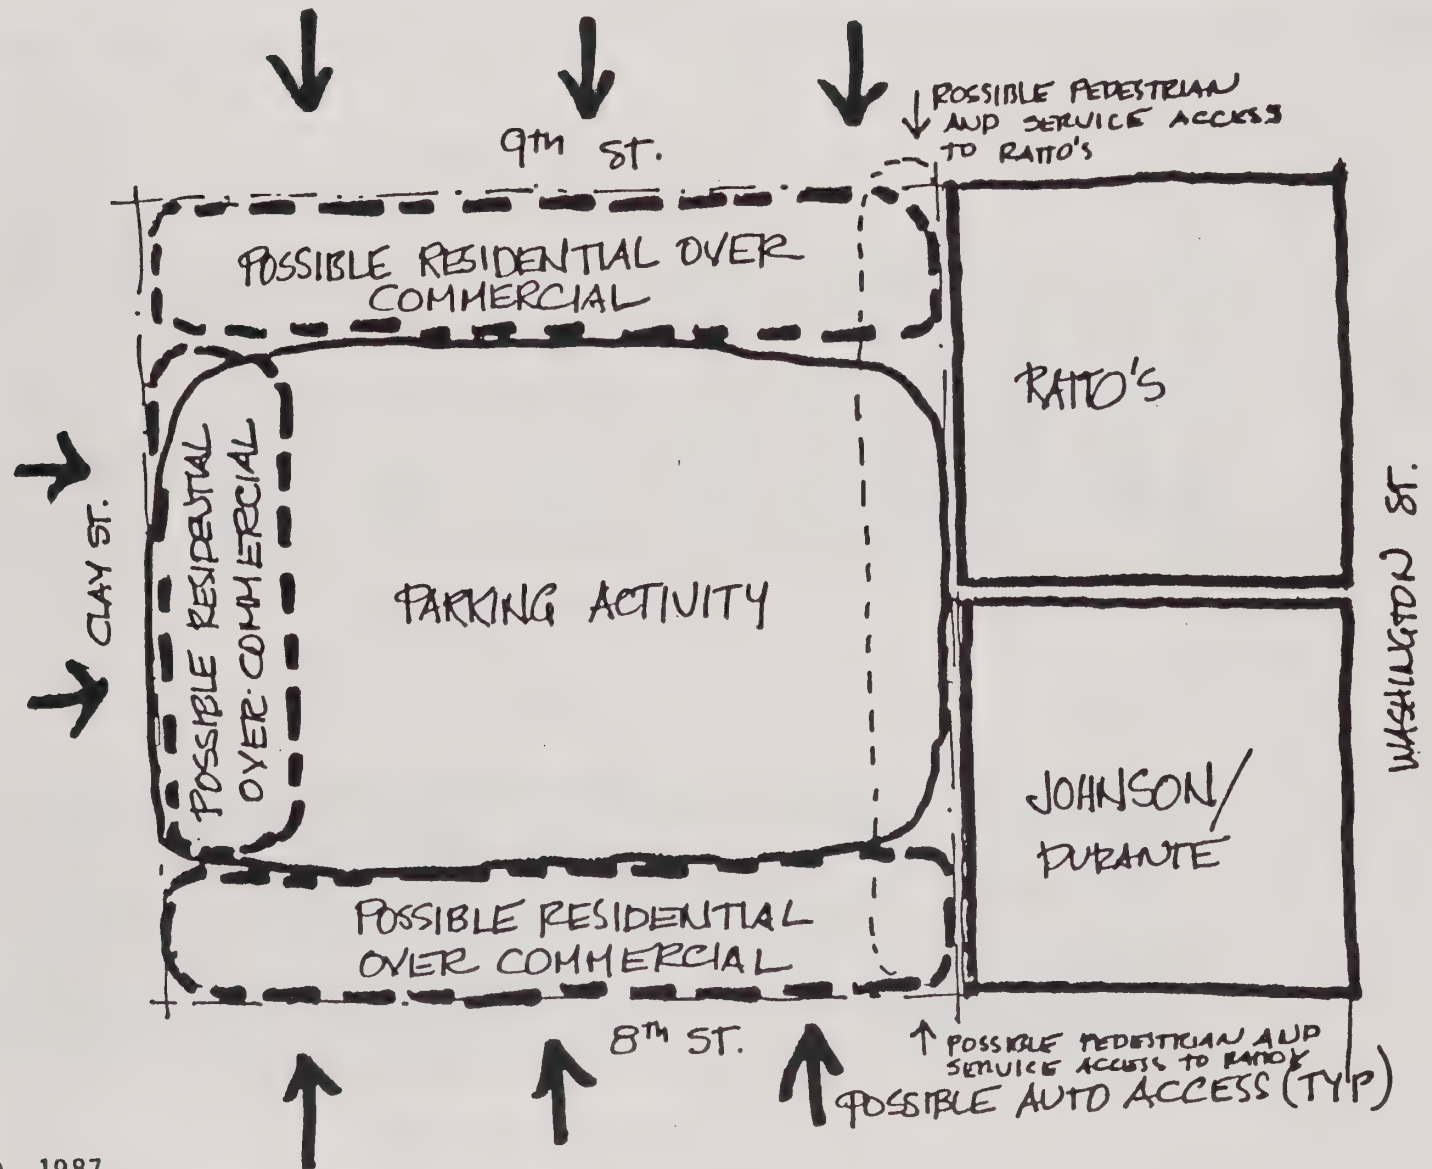 POSSIBLE PEDESTRIAN
AND SERVICE ACCESS
TO RATTO'S
9th ST.
POSSIBLE RESIDENTIAL OVER
COMMERCIAL
RATTO'S
CLAY ST.
POSSIBLE RESIDENTIAL
OVER COMMERCIAL
PARKING ACTIVITY
WASHINGTON ST.
JOHNSON/
DURANTE
POSSIBLE RESIDENTIAL
OVER COMMERCIAL
8th ST.
POSSIBLE PEDESTRIAN AND
SERVICE ACCESS TO
POSSIBLE AUTO ACCESS (TYP)
1987